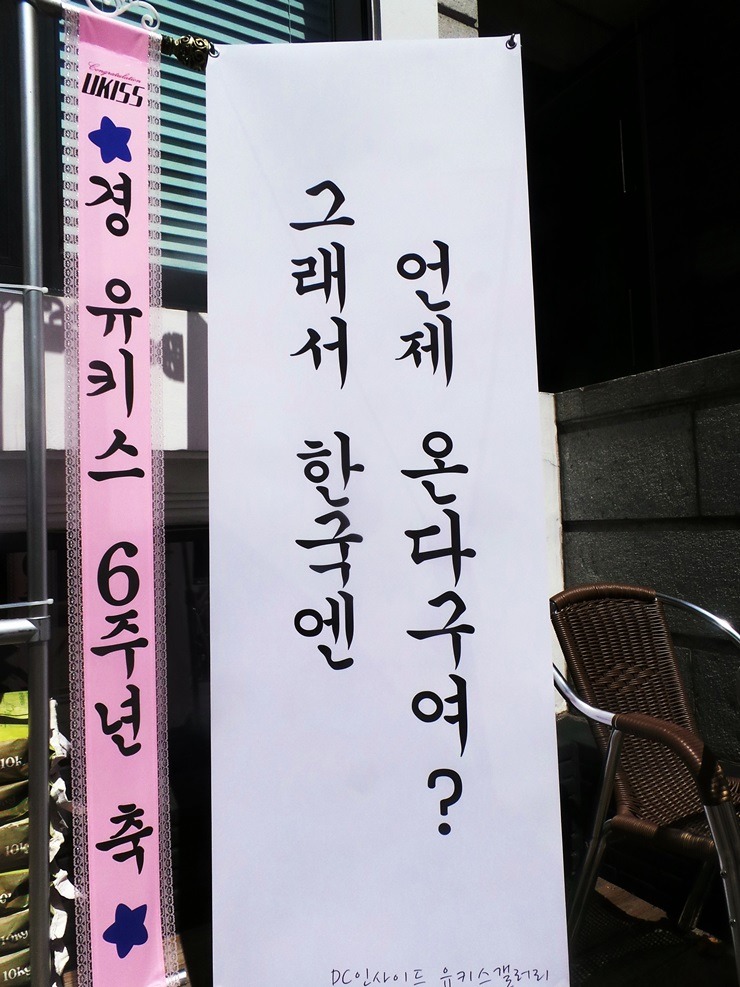 Congratulation
UKISS
★경 유키스 6주년 축★
그래서 한국엔
언제 온다구여?
DC인사이드 유키스갤러리
10kg